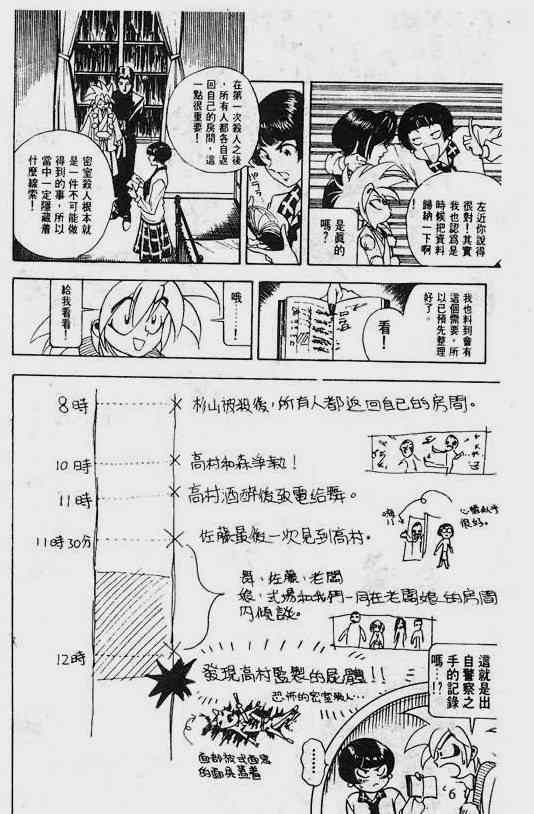 左近你說得
很對！其實
我也認為是
時候把資料
歸納一下啊
！
是真的
嗎？
在第一次殺人之後
，所有人都各自返
回自己的房間，這
一點很重要！
密室殺人根本就
是一件不可能做
得到的事，所以
當中一定隱藏着
什麼線索！
我也料到會有
這個需要，所
以已預先整理
好了。
看！
哦……！
給我看看！
8時 杉山被殺後，所有人都返回自己的房間。
10時 高村和森爭執！
11時 高村酒醉後致電給舞。
11時30分 佐藤最後一次見到高村。
心情似乎
很好。
舞、佐藤、老闆
娘、式場和我們一同在老闆娘的房間
內傾談。
12時 發現高村監製的屍體！！
恐怖的密室殺人…
面部被式画
的面具蓋着
這就是出
自警察之
手的記錄
嗎…！？
……